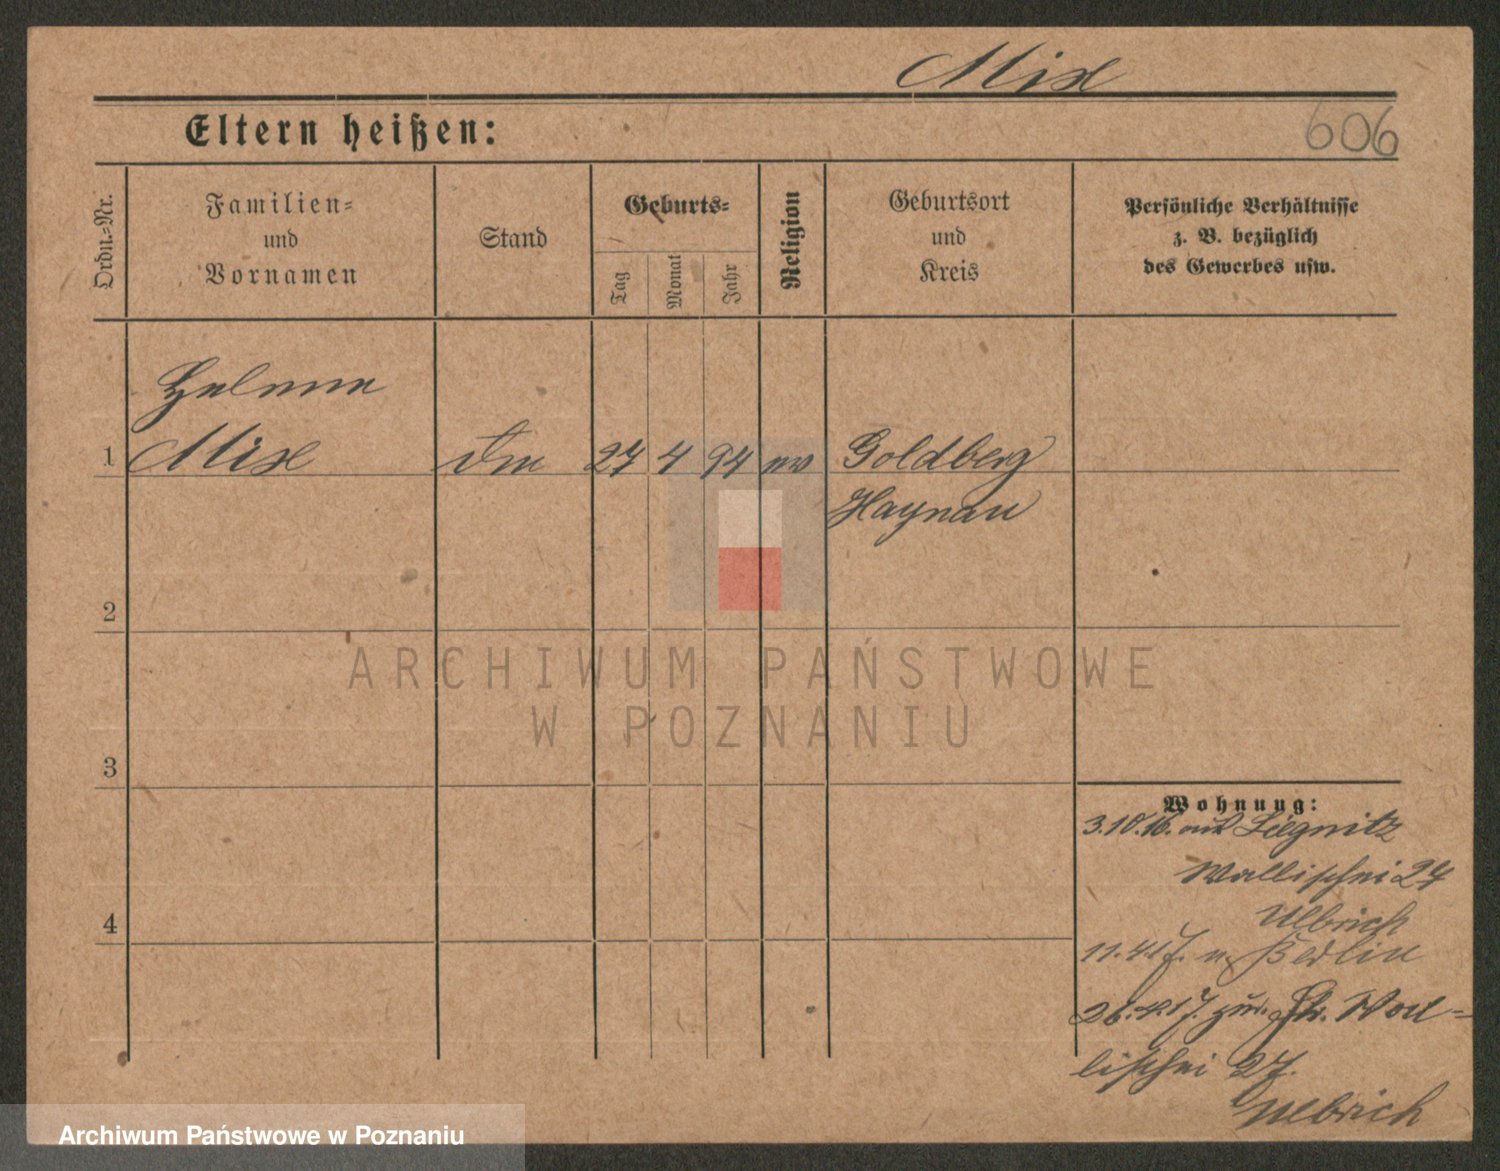 Mixe
Eltern heißen:
606
Ordn.-Nr.
Familien-
und
Vornamen
Stand
Geburts-
Tag
Monat
Jahr
Religion
Geburtsort
und
Kreis
Persönliche Verhältnisse
z. B. bezüglich
des Gewerbes usw.
1
Mixe
27
4
94
Goldberg
Haynau
2
3
4
ARCHIWUM PAŃSTWOWE
W POZNANIU
Wohnung:
3.10.16. aus Liegnitz
Wallischei 27
Ulbrich
11.4.17. n. Berlin
26.4.17. zur. Wal-
lischei 27.
Ulbrich
Archiwum Państwowe w Poznaniu